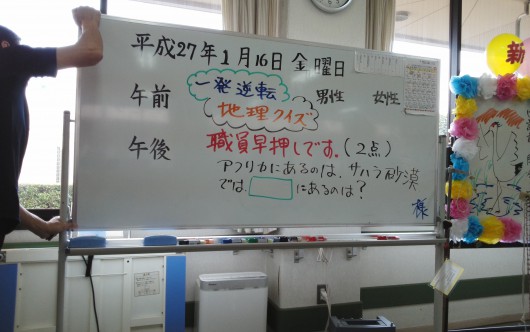 平成27年1月16日 金曜日
午前 一発逆転 男性 女性
地理クイズ
午後 職員早押しです。(2点)
アフリカにあるのは、サハラ砂漠
では、 にあるのは?
様
新